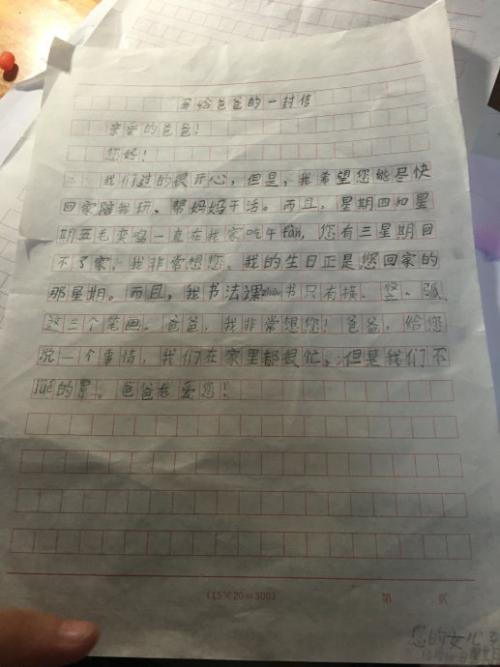 写给爸爸的一封信
亲爱的爸爸！
您好！
我们过的很开心，但是，我希望您能尽快
回家陪我玩，帮妈妈干活。而且，星期四和星
期五毛奕鸣一直在我家吃午fàn，您有三星期回
不了家，我非常想您，我的生日正是您回家的
那星期。而且，我书法课书只有横、竖、弧
这三个笔画。爸爸，我非常想您！爸爸，给您
说一个事情，我们在家里都很忙，但是我们不
的累。爸爸我爱您！
(15×20=300)
第 页
您的女儿